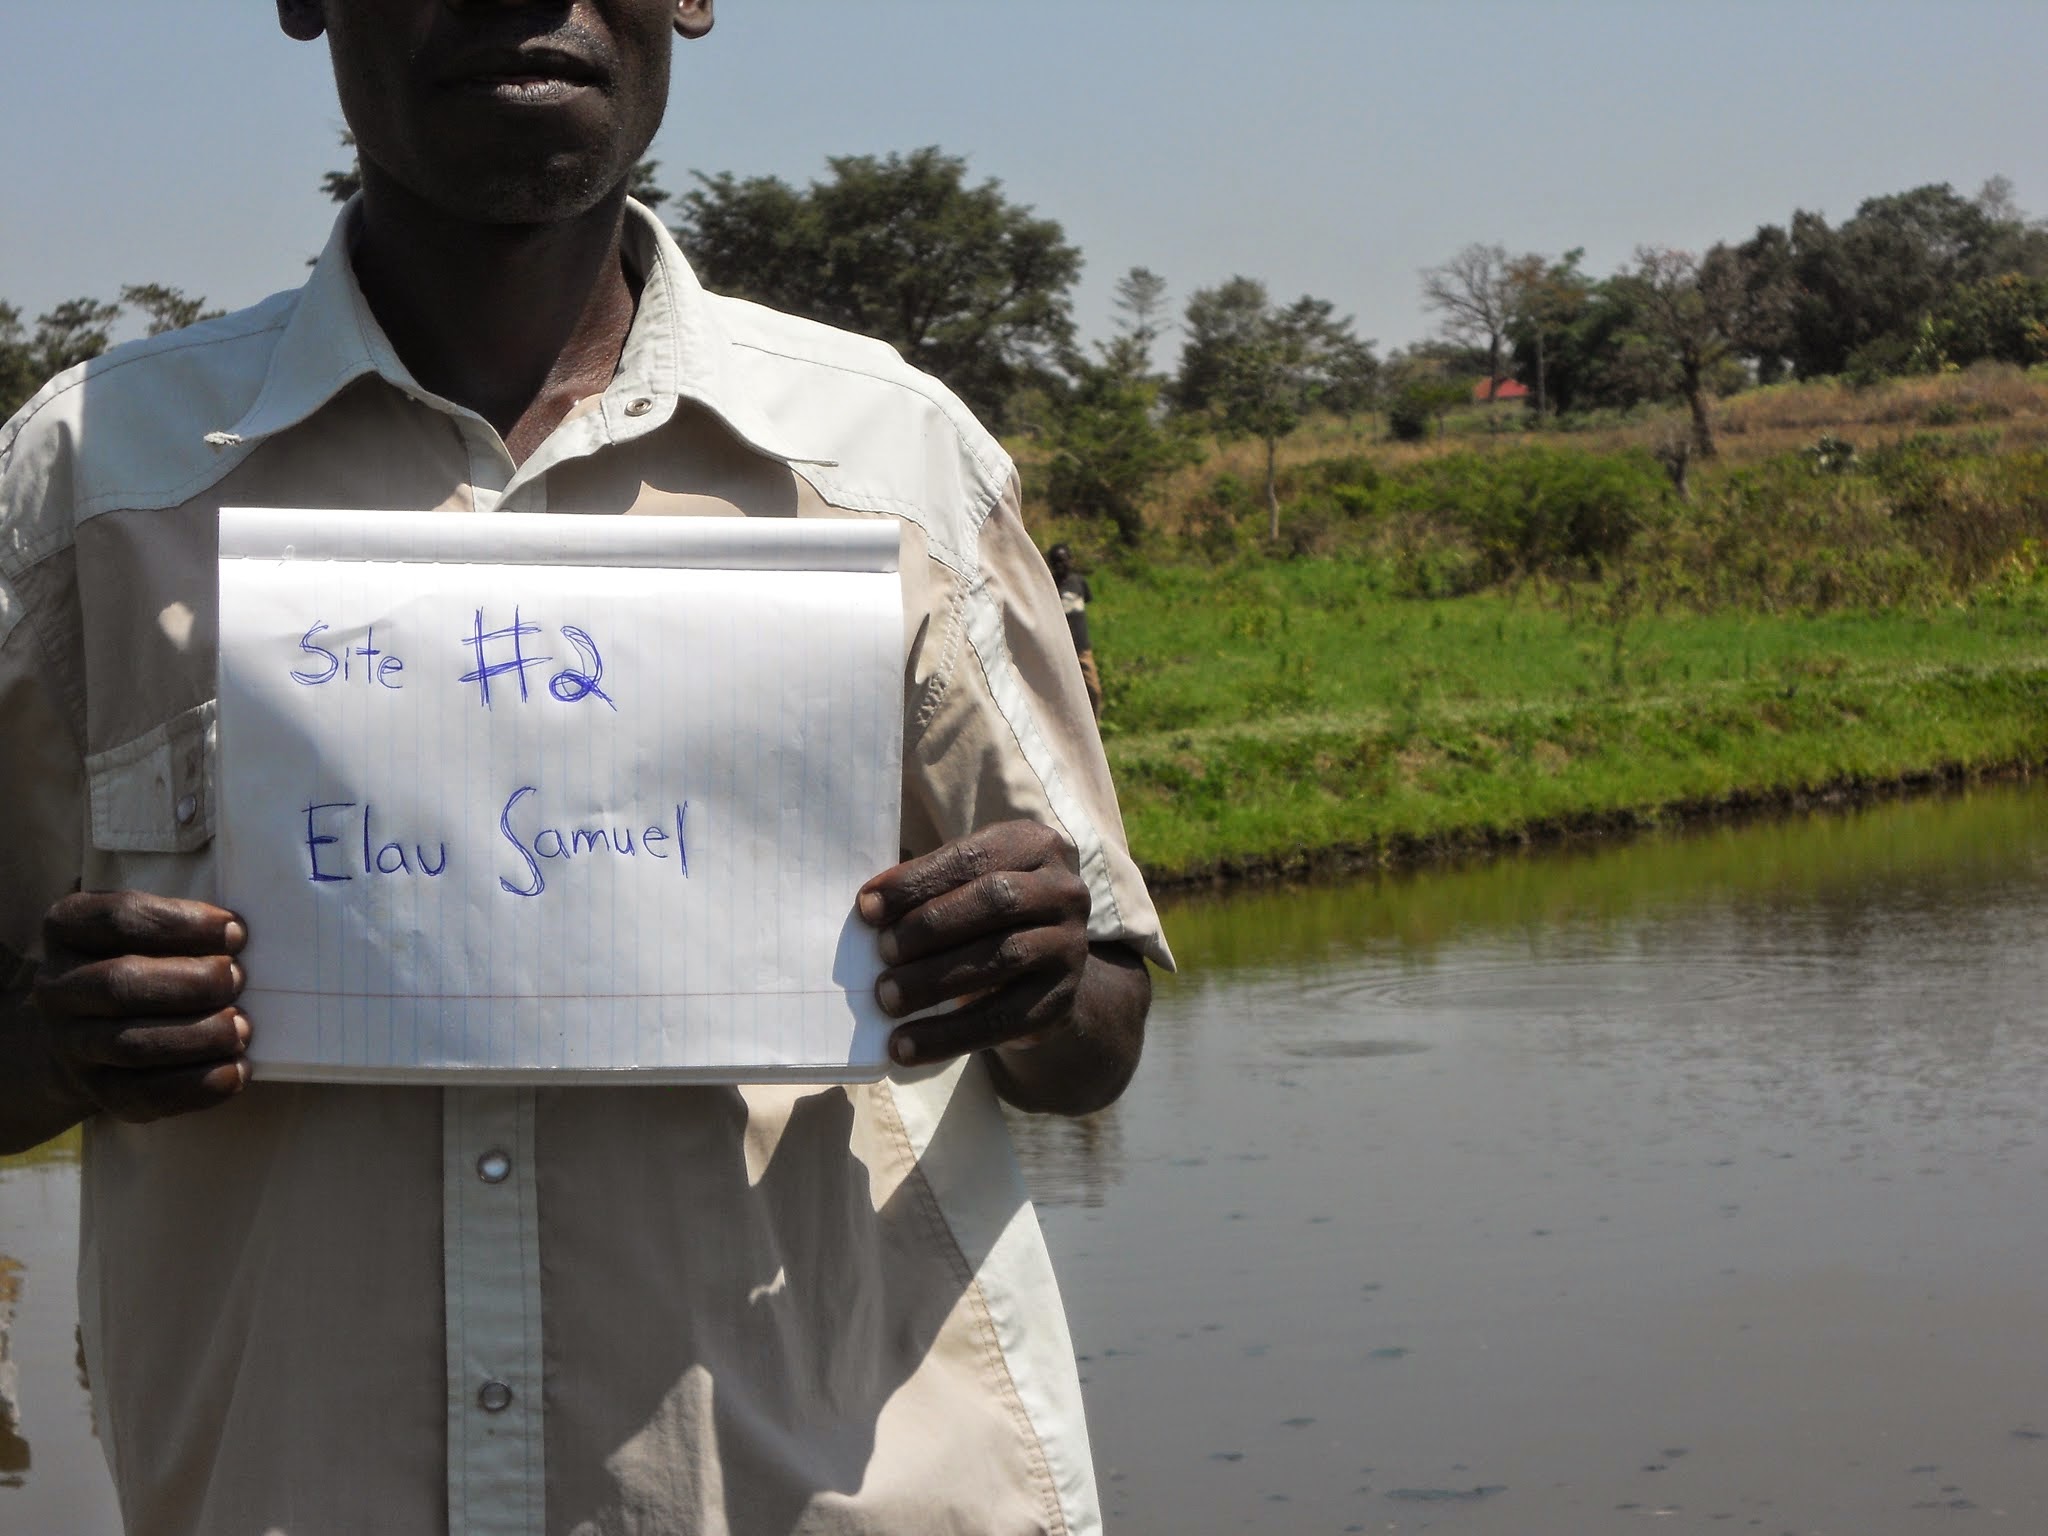 Site #2
Elau Samuel